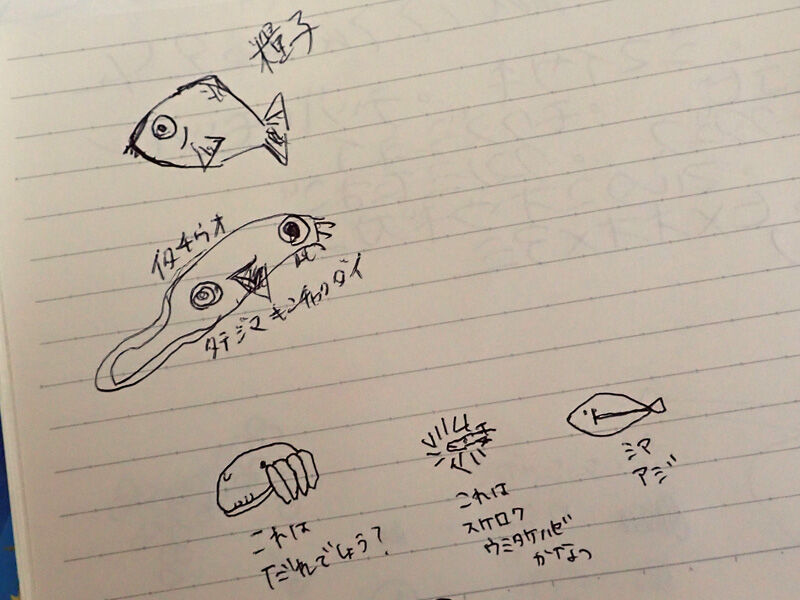 イタチウオ
タテジマキンチャクダイ
これは
だれでしょう?
これは
スケロク
ウミタケハゼ
かなっ
シマ
アジ